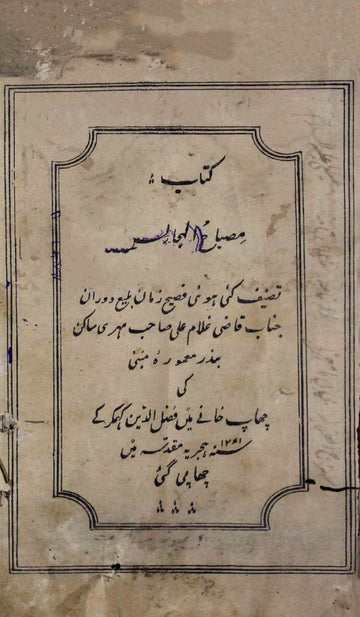 کتاب
مصباح المجالس
تصنیف کئی ہوئی فصیح زمان بلیغ دوران
جناب قاضی غلام علی صاحب مہری ساکن
بندر معمورہ منبئی
کی
چھاپ خانے میں فضل الدین کہمکر کے
سنہ ۱۲۶۱ ہجریہ مقدسہ میں
چھاپی گئی